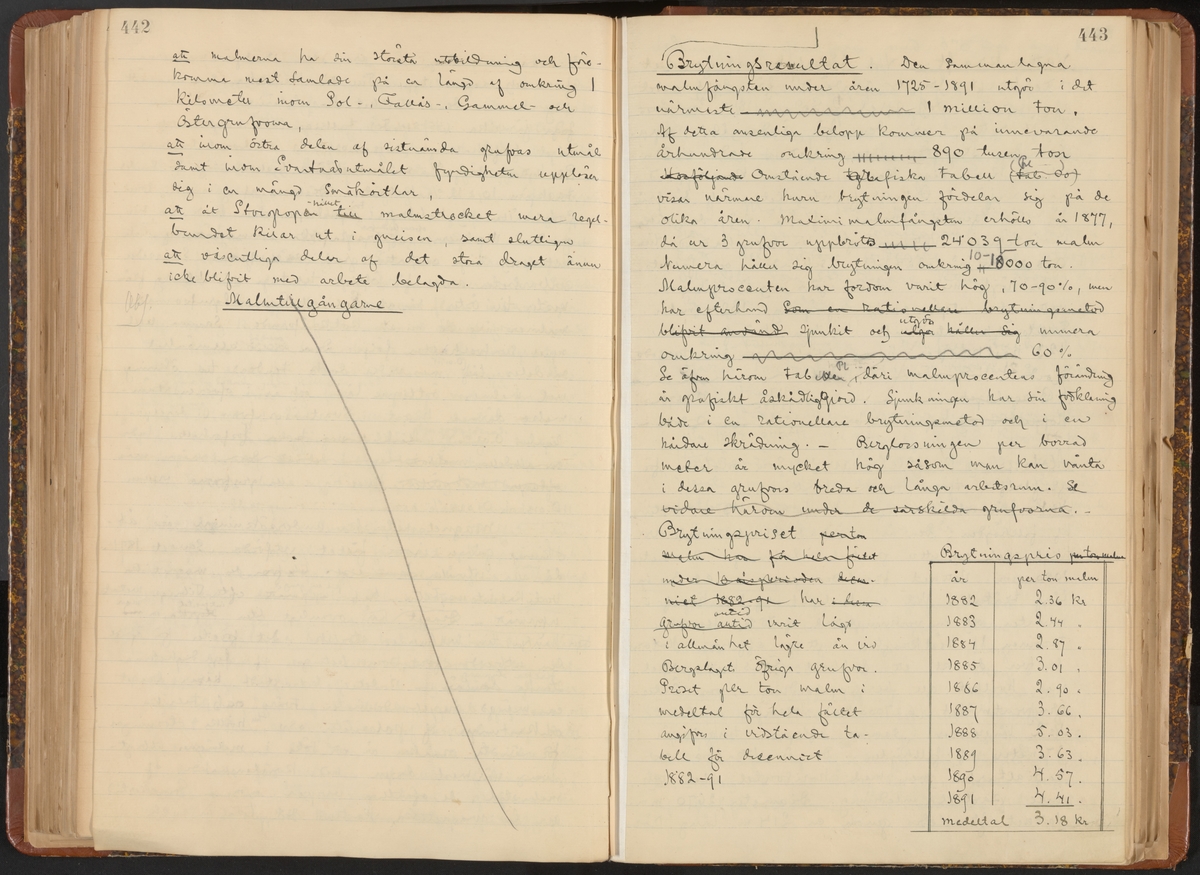 442
att malmerna ha sin största utbildning och före-
komma mest samlade på en längd af omkring 1
kilometer inom Pol-, Fallås-, Gammel- och
Östergrufvorna,
att inom östra delen af sistnämda grufvas utmål
samt inom utmålet fyndigheten upplöser
sig i en mängd småkörtlar,
att åt Storporpen malmstrecket mera regel-
bundet kilar ut i gneisen, samt slutligen
att väsentliga delar af det stora draget ännu
icke blifvit med arbete belagda.
Malmtillgångarne
443
Brytningsresultat. Den sammanlagna
malmfångsten under åren 1725-1891 utgör i det
närmiste 1 million ton.
Af detta ansenliga belopp kommer på innevarande
århundrade omkring 890 tusen ton
Omstående grafiska tabell
visar närmare huru brytningen fördelar sig på de
olika åren. Maximimalmfångsten erhölls år 1877,
då ur 3 grufvor uppbröts 24039 ton malm
Numera håller sig brytningen omkring 10-18000 ton.
Malmprocenten har fordom varit hög, 70-90%, men
har efterhand som en rationellare brytningsmetod
blifvit använd sjunkit och utgör håller sig numera
omkring 60%
Se äfven härom tabellen, däri malmprocentens förändring
är grafiskt åskådliggjord. Sjunkningen har sin förklaring
både i en rationellare brytningsmetod och i en
hårdare skrädning. — Berglossningen per borrad
meter är mycket hög såsom man kan vänta
i dessa grufvors breda och långa arbetsrum. Se
vidare härom under de särskilda grufvorna. -
Brytningspriset per ton
malm har för hela fältet
under 10 årsperioden
1882-91 har
grufvor alltid varit lågt
i allmänhet lägre än
Bergslaget öfriga grufvor.
Priset per ton malm i
medeltal för hela fältet
angifves i vidstående ta-
bell för decenniet
1882-91
Brytningspris per ton malm
år per ton malm
1882 2.36 kr
1883 2.44 "
1884 2.87 "
1885 3.01 "
1886 2.90 "
1887 3.66 "
1888 5.03 "
1889 3.63 "
1890 4.57 "
1891 4.41 "
medeltal 3.18 kr